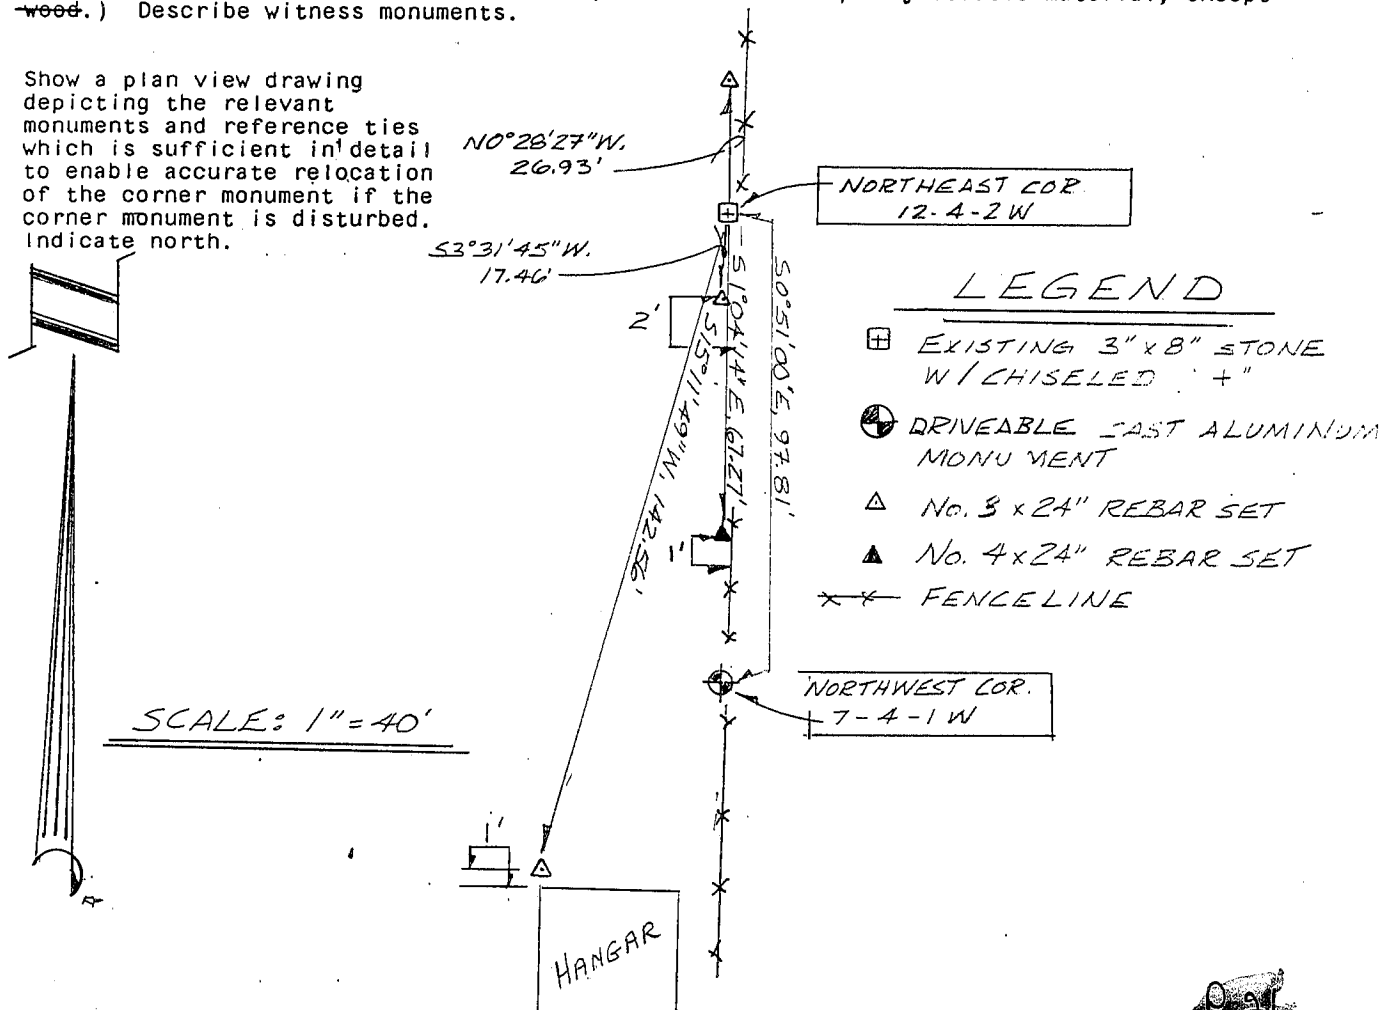 wood.) Describe witness monuments.
Show a plan view drawing
depicting the relevant
monuments and reference ties
which is sufficient in detail
to enable accurate relocation
of the corner monument if the
corner monument is disturbed.
Indicate north.
N0°28'27"W.
26.93'
NORTHEAST COR.
12-4-2W
S3°31'45"W.
17.46'
2'
S15°11'49"W, 142.56'
S1°04'14"E, 67.27'
S0°51'00"E, 97.81'
1'
LEGEND
EXISTING 3" x 8" STONE
W/CHISELED "+"
DRIVEABLE CAST ALUMINUM
MONUMENT
No. 3 x 24" REBAR SET
No. 4 x 24" REBAR SET
FENCELINE
NORTHWEST COR.
7-4-1W
SCALE: 1"=40'
1'
HANGAR